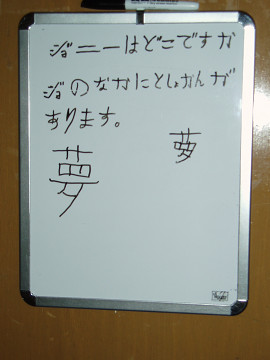 ジョニーはどこですか
ジョのなかにとしょかんが
あります。
夢
夢